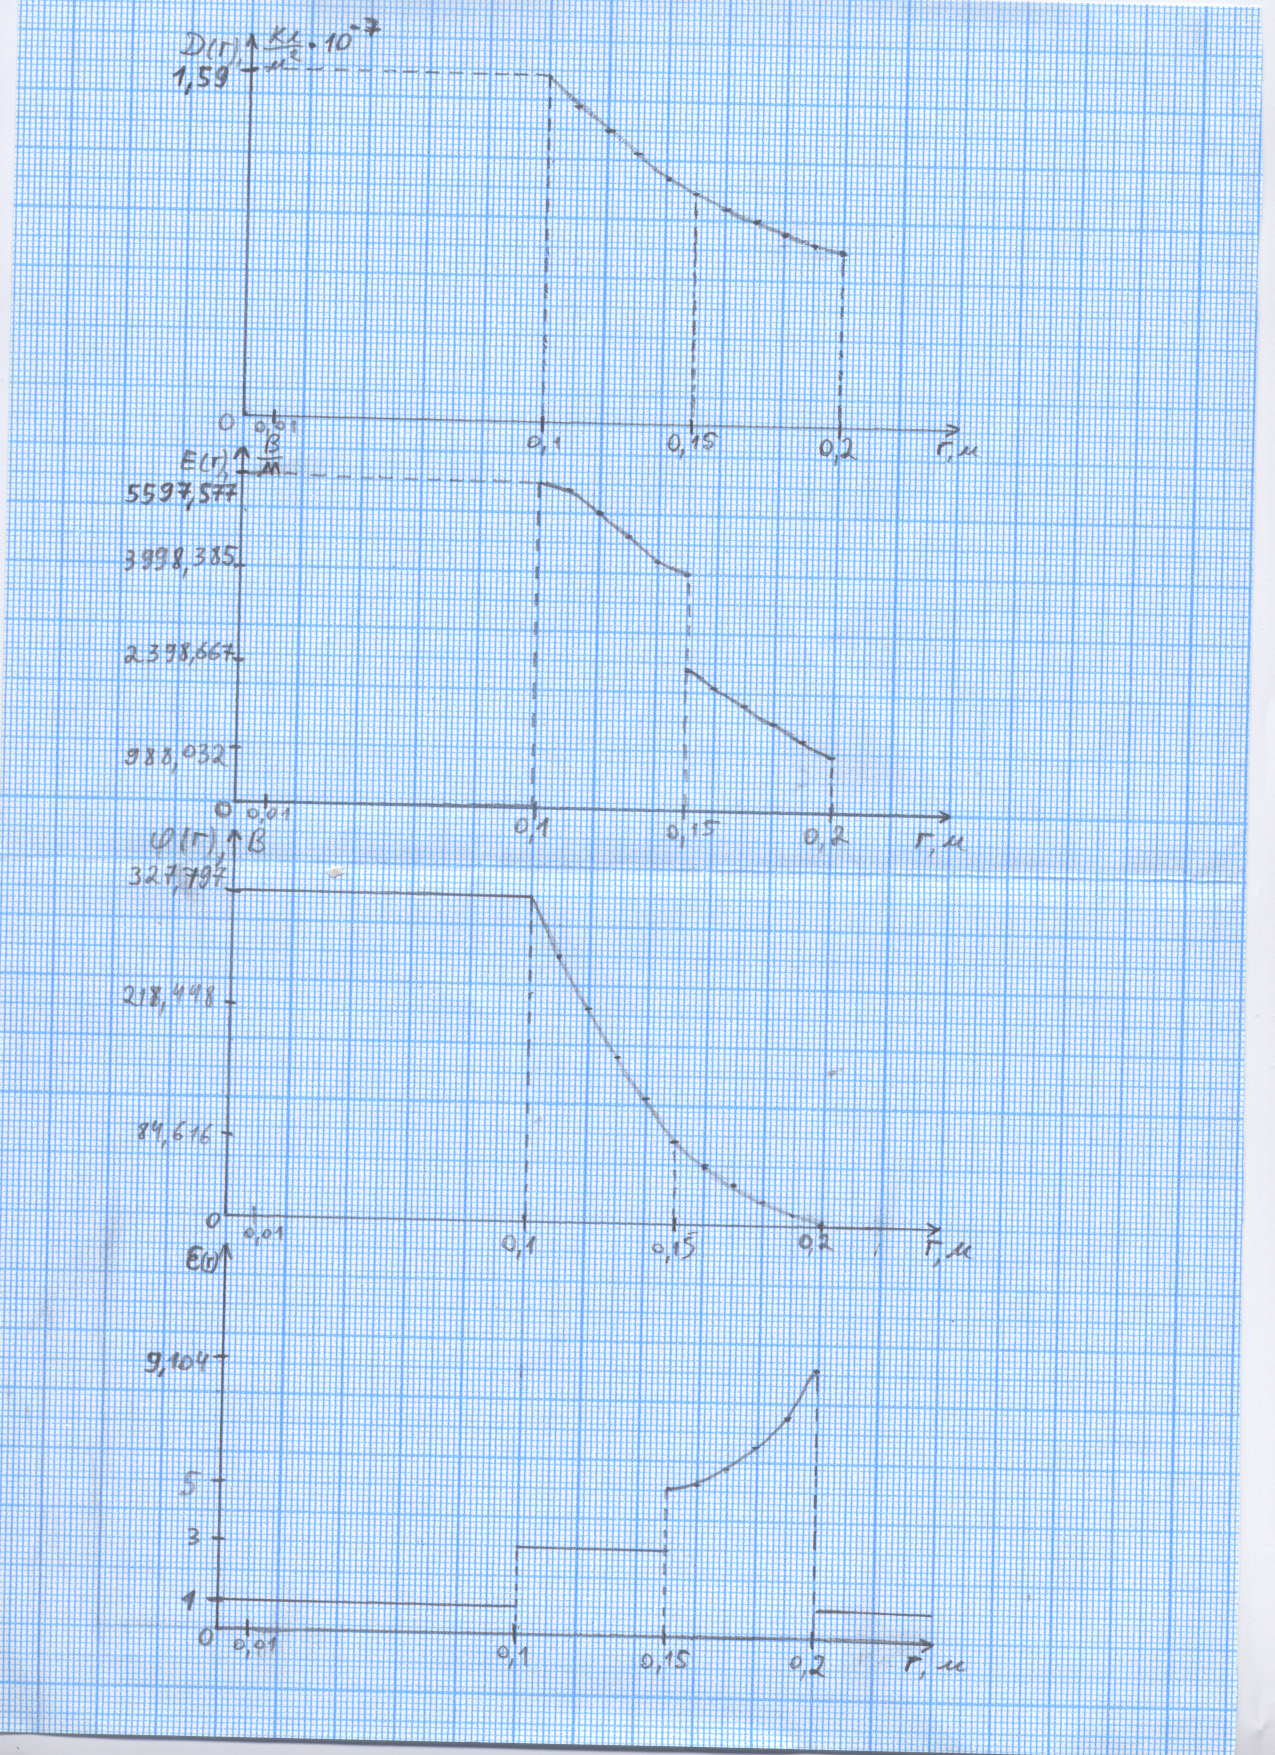 D(r), Кл/м² • 10⁻⁷
1,59
0 0,01 0,1 0,15 0,2 r, м
E(r), В/м
5597,577
3998,385
2398,667
988,032
0 0,01 0,1 0,15 0,2 r, м
φ(r), В
327,797
218,448
84,616
0 0,01 0,1 0,15 0,2 r, м
ε(r)
9,104
5
3
1
0 0,01 0,1 0,15 0,2 r, м